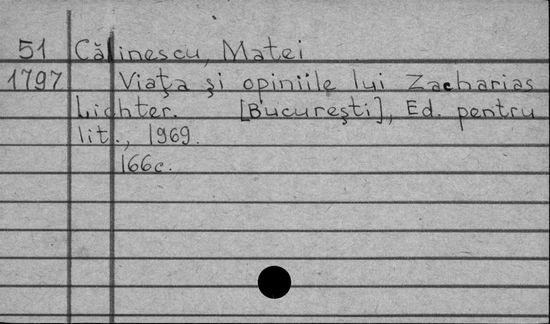 51 Călinescu, Matei
1797 Viaţa şi opiniile lui Zacharias
Lichter. [Bucureşti], Ed. pentru
lit., 1969.
166c.